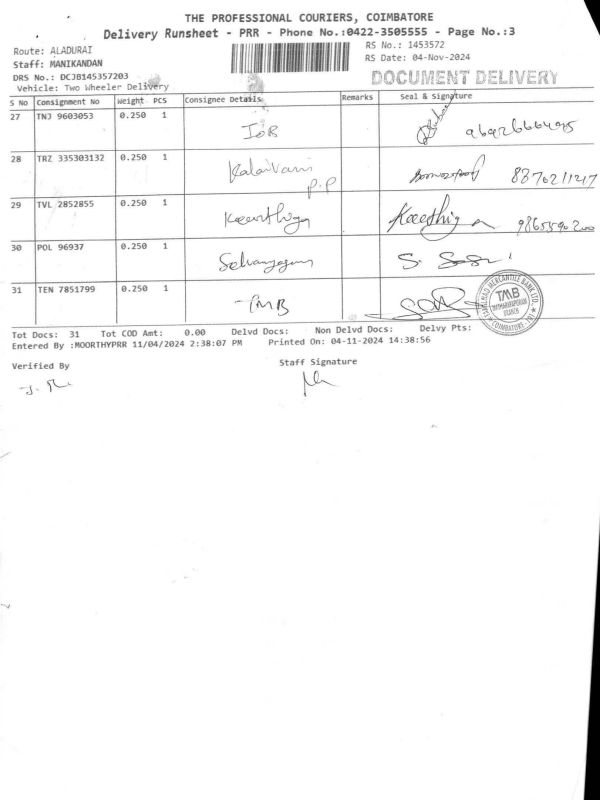 THE PROFESSIONAL COURIERS, COIMBATORE
Delivery Runsheet - PRR - Phone No.:0422-3505555 - Page No.:3
Route: ALADURAI
RS No.: 1453572
Staff: MANIKANDAN
RS Date: 04-Nov-2024
DRS No.: DCJB145357203
DOCUMENT DELIVERY
Vehicle: Two Wheeler Delivery
S No Consignment No Weight PCS Consignee Details Remarks Seal & Signature
27 TNJ 9603053 0.250 1 IOB
28 TRZ 335303132 0.250 1 Kalaivani 8870211217
P.P
29 TVL 2852855 0.250 1 Keerthiga Keerthiga 9865590200
30 POL 96937 0.250 1 S.
31 TEN 7851799 0.250 1 TMB
TAMILNAD MERCANTILE BANK LTD.
TMB
BRANCH
COIMBATORE
Tot Docs: 31 Tot COD Amt: 0.00 Delvd Docs: Non Delvd Docs: Delvy Pts:
Entered By :MOORTHYPRR 11/04/2024 2:38:07 PM Printed On: 04-11-2024 14:38:56
Verified By
Staff Signature